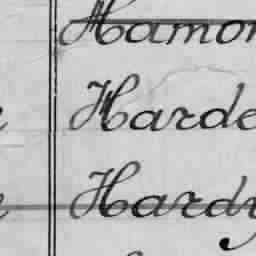 Hamon
Harde
Hardy